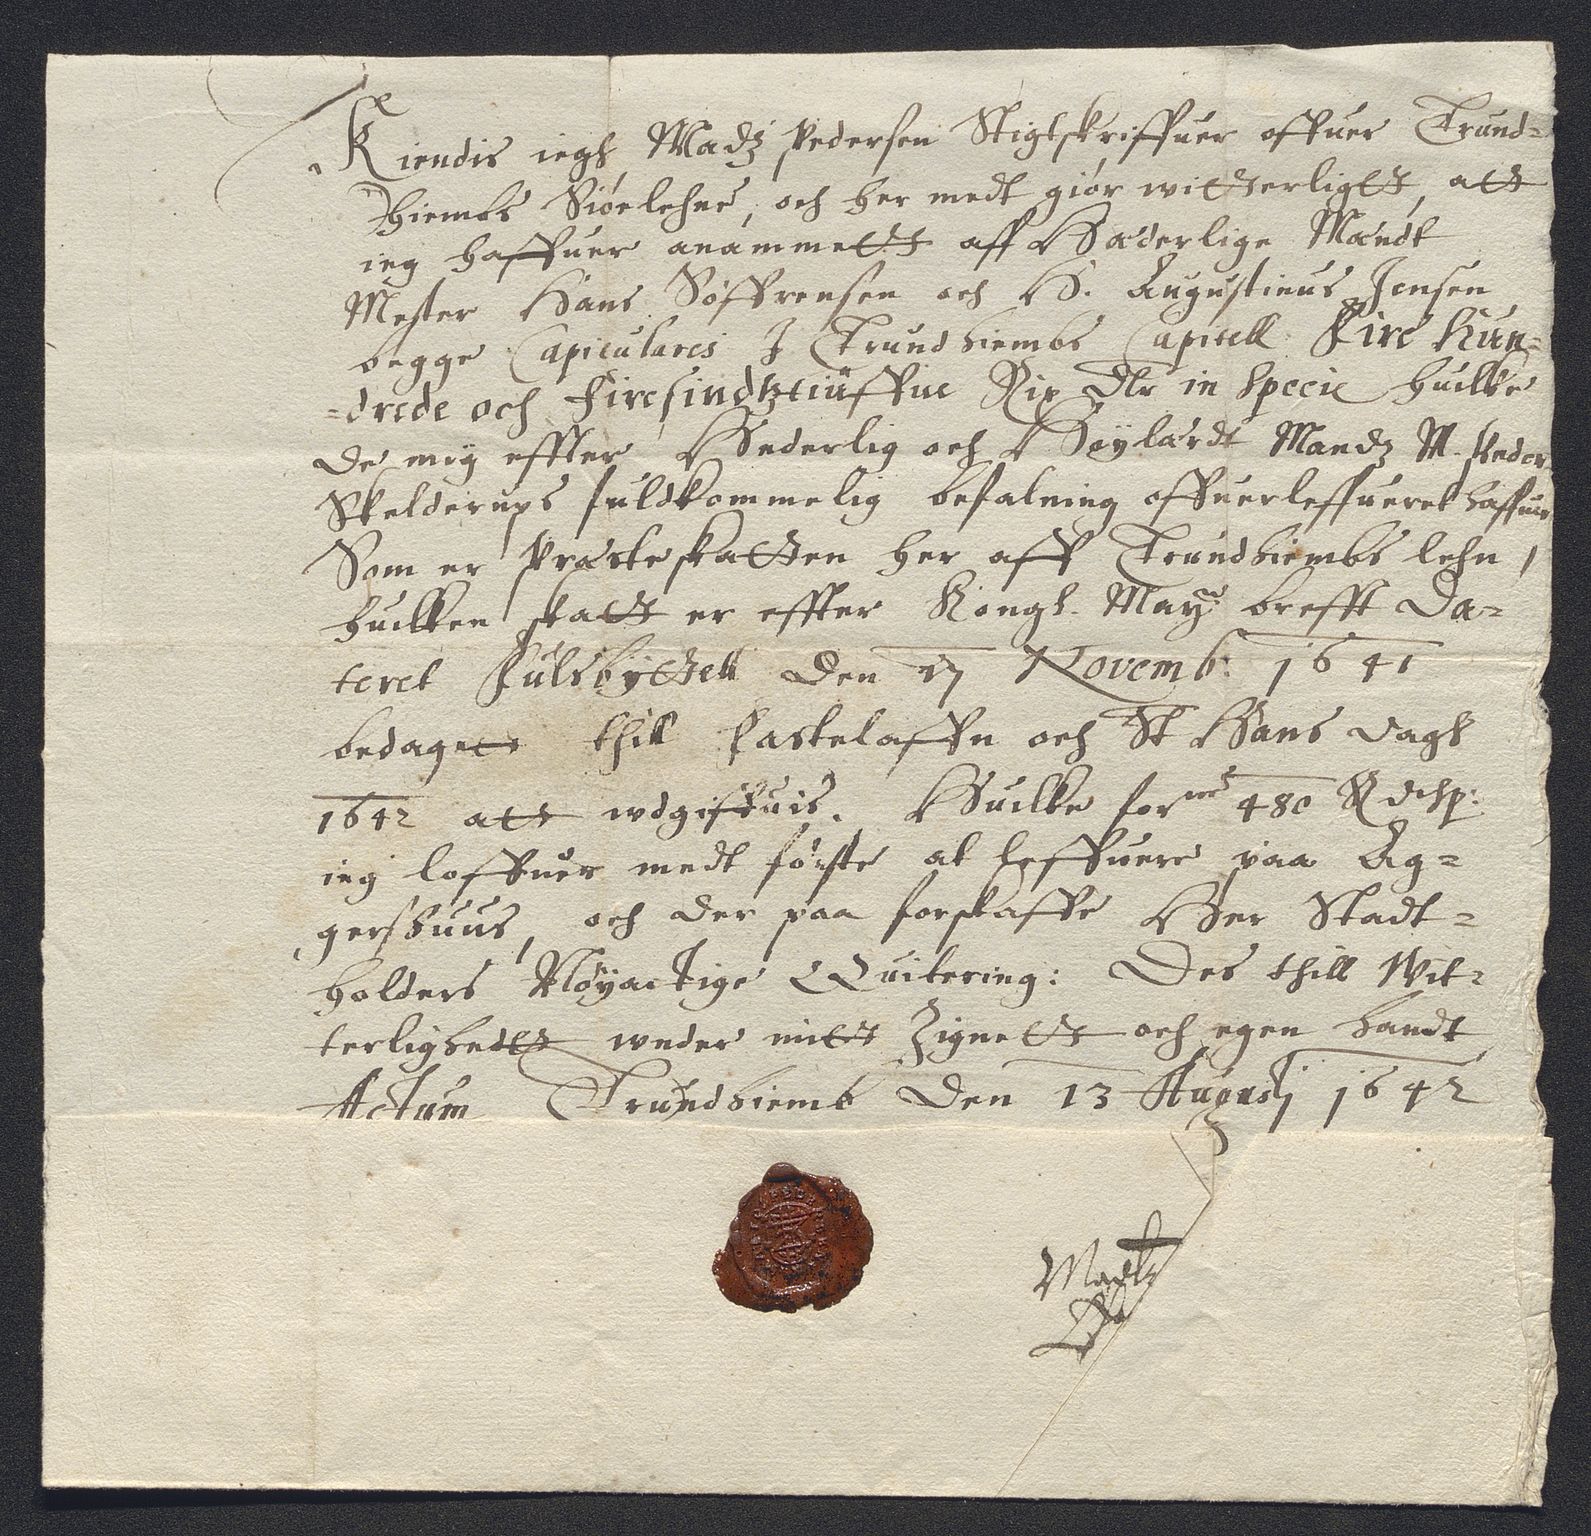 Kiendis iegh Madz Pedersen Stigtskriffuer offuer Trund-
hiembs Siøelehne, och her medt giør witterligtt, att
ieg haffuer anammett aff Hæderlige Mændt
Mester Hans Søffrensen och H. Augustinus Jensen
begge Capitulares I Trundhiembs Capitell Fire Hun-
-drede och Firesindtztiuffue Rix Dlr in specie huilke
de mig effter Hederlig och Høylærdt Mandz M. Peder
Skelderups fuldkommelig befalning offuerleffueret haffuer
Som er Præsteskatten her aff Trundhiembs lehn,
huilken skatt er effter Kongl. Maytz brefft Da-
teret Fulsbyttell den 17 Novemb: 1641
bedaget thill fastelaffn och St Hans dagh
1642 att wdgiffuis. Huilke forne 480 Rdsp:
ieg loffuer medt første at leffuere paa Ag-
gershuus, och der paa forskaffe Her Stadt-
holders Nøyactige Quitering: Des thill Wit-
terlighedt under mitt Zignett och egen handt
Actum Trundhiemb den 13 Augustj 1642
Madtz